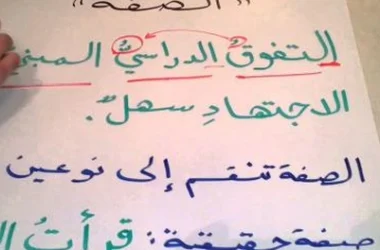 "الصفة"
التفوقُ الدراسيُّ المبني
الاجتهادِ سهلٌ.
الصفة تنقسم إلى نوعين
صفة حقيقية: قرأتُ